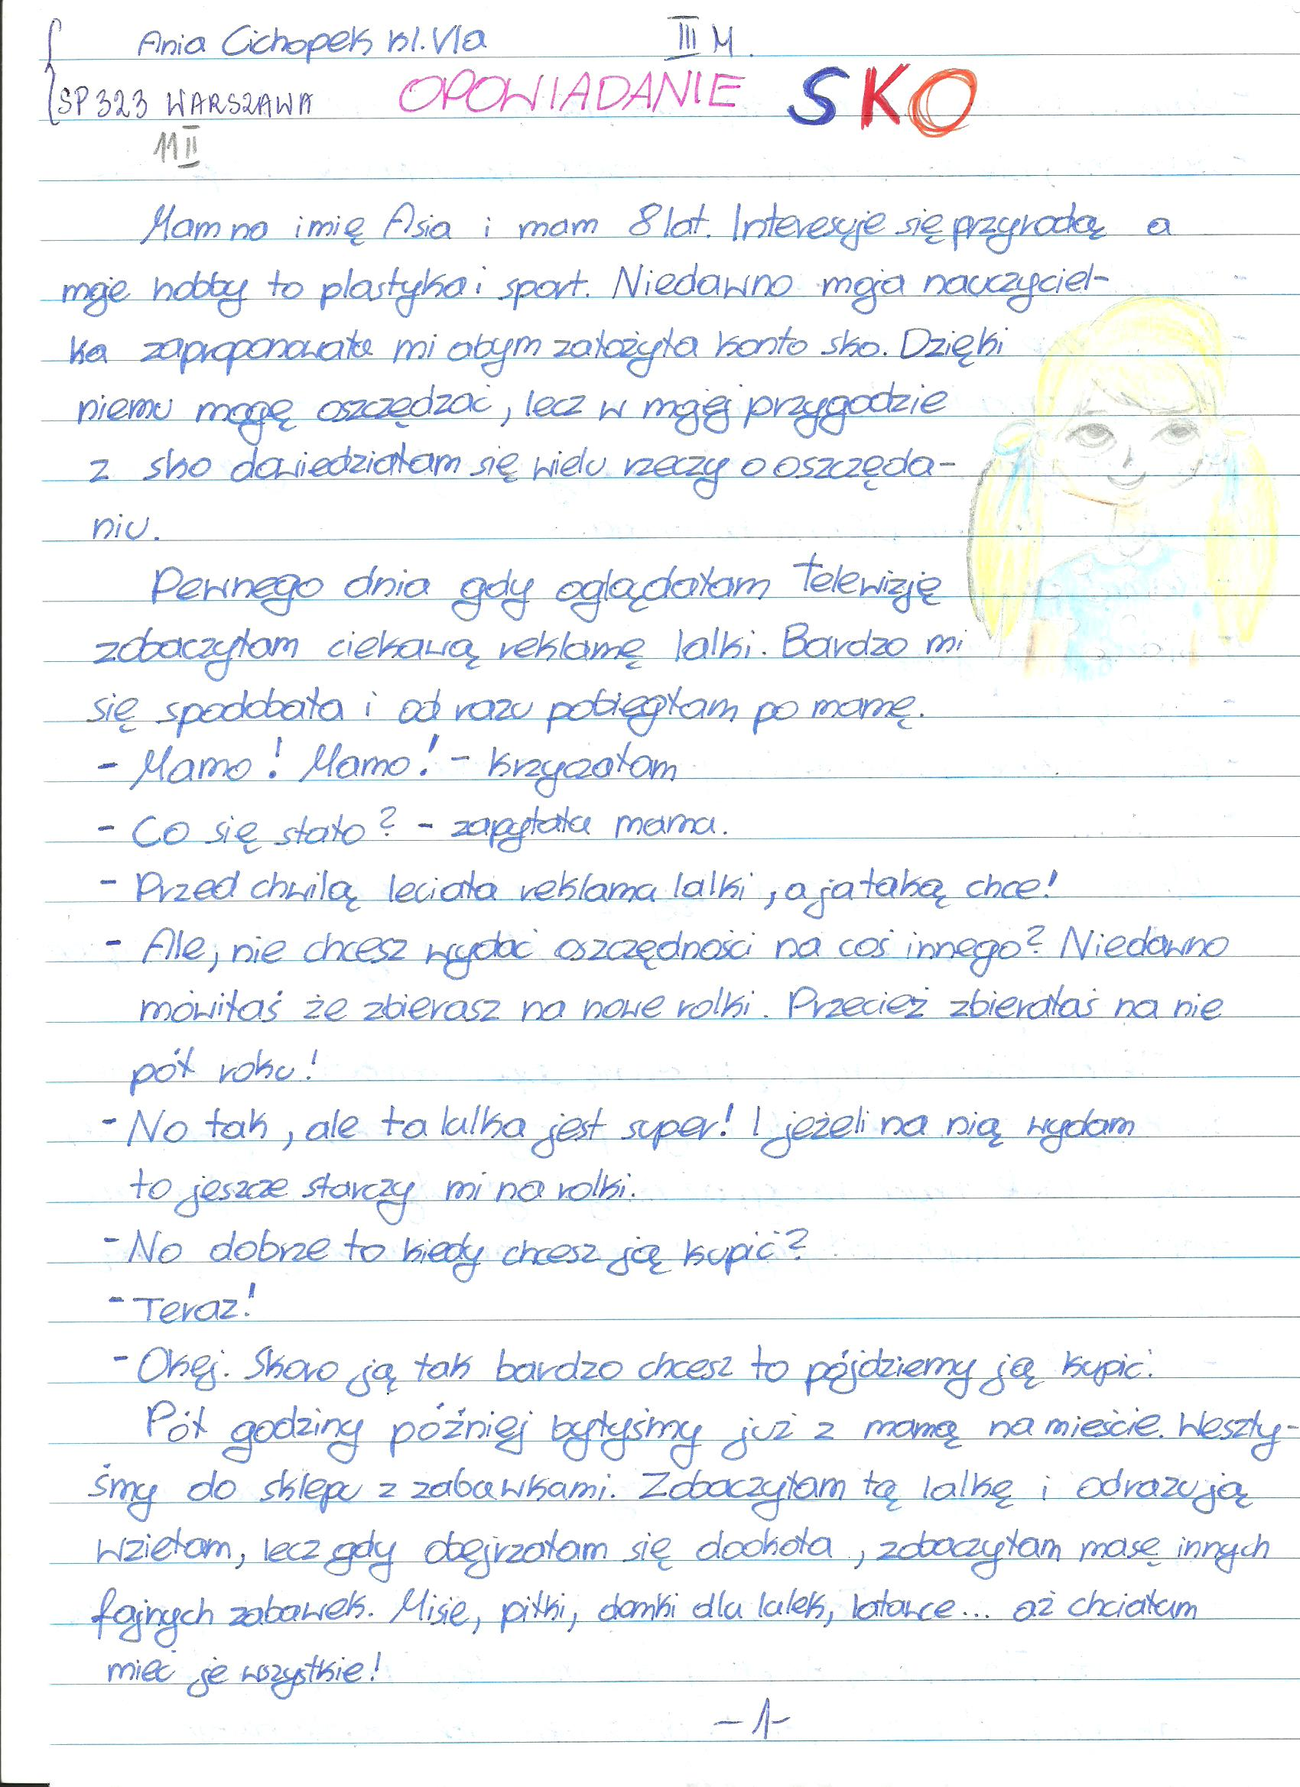 Ania Cichopek kl. VIa III M.
SP 323 WARSZAWA OPOWIADANIE SKO
11 II
Mam na imię Asia i mam 8 lat. Interesuje się przyrodą a
moje hobby to plastyka i sport. Niedawno moja nauczyciel-
ka zaproponowała mi abym założyła konto sko. Dzięki
niemu mogę oszczędzać, lecz w mojej przygodzie
z sko dowiedziałam się wielu rzeczy o oszczęda-
niu.
Pewnego dnia gdy oglądałam telewizję
zobaczyłam ciekawą reklamę lalki. Bardzo mi
się spodobała i od razu pobiegłam po mamę.
- Mamo! Mamo! - krzyczałam
- Co się stało? - zapytała mama.
- Przed chwilą leciała reklama lalki, a ja taką chce!
- Ale, nie chcesz wydać oszczędności na coś innego? Niedawno
mówiłaś że zbierasz na nowe rolki. Przecież zbierałaś na nie
pół roku!
- No tak, ale ta lalka jest super! I jeżeli na nią wydam
to jeszcze starczy mi na rolki.
- No dobrze to kiedy chcesz ją kupić?
- Teraz!
- Okej. Skoro ją tak bardzo chcesz to pójdziemy ją kupić.
Pół godziny później byłyśmy już z mamą na mieście. Weszły-
śmy do sklepu z zabawkami. Zobaczyłam tą lalkę i odrazu ją
wziełam, lecz gdy obejrzałam się dookoła, zobaczyłam masę innych
fajnych zabawek. Misie, piłki, domki dla lalek, latawce... aż chciałam
mieć je wszystkie!
- 1 -